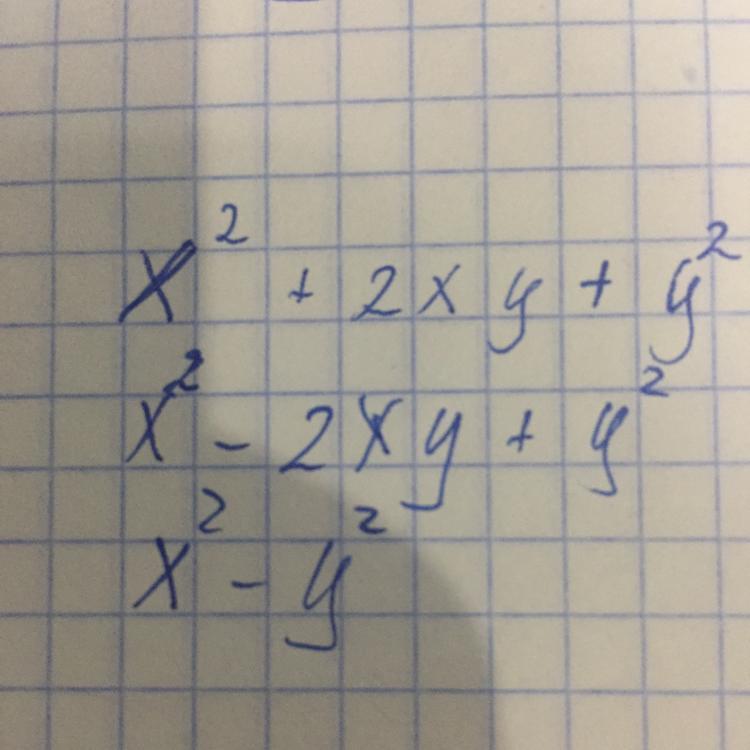 x² + 2xy + y²
x² - 2xy + y²
x² - y²